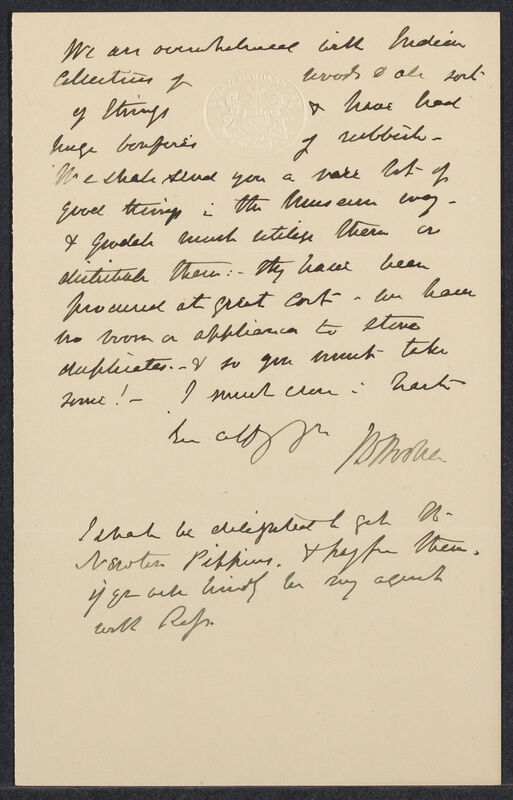 We are overwhelmed with Indian
Collections of woods & all sorts
of things & have had
huge bonfires of rubbish –
We shall send you a rare lot of
good things in the Museum way –
& Goodale must utilize them or
distribute them: – they have been
procured at great cost – we have
no room or appliances to store
duplicates. – & so you must take
some! – I must close in haste
Ever affy yrs
J D Hooker
I shall be delighted to get the
Newton Pippins. & pay for them.
if you will kindly be my agent
with